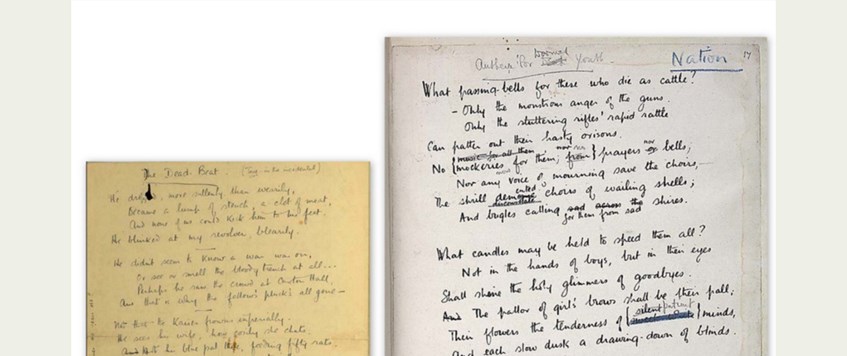 The Dead Beat.
He dropped, more sullenly than wearily,
Became a lump of stench, a clot of meat,
And none of us could kick him to his feet.
He blinked at my revolver, blearily.
He didn't seem to know a war was on,
Or see or smell the bloody trench at all...
Perhaps he saw the crowd at Caxton Hall,
And that is why the fellow's pluck's all gone—
Not that the Kaiser frowns imperially.
He sees his wife, how cosily she chats,
his blue pal there, feeding fifty rats.
Anthem for Doomed Youth. Nation 17
What passing-bells for these who die as cattle?
- Only the monstrous anger of the guns.
Only the stuttering rifles' rapid rattle
Can patter out their hasty orisons.
No music for all them nor
mockeries for them; from prayers nor bells;
Nor any voice of mourning save the choirs,—
The shrill demented choirs of wailing shells;
disconsolate
And bugles calling sad across the shires.
for them from sad
What candles may be held to speed them all?
Not in the hands of boys, but in their eyes
Shall shine the holy glimmers of goodbyes.
And The pallor of girls' brows shall be their pall;
silent patient
Their flowers the tenderness of minds,
And each slow dusk a drawing-down of blinds.